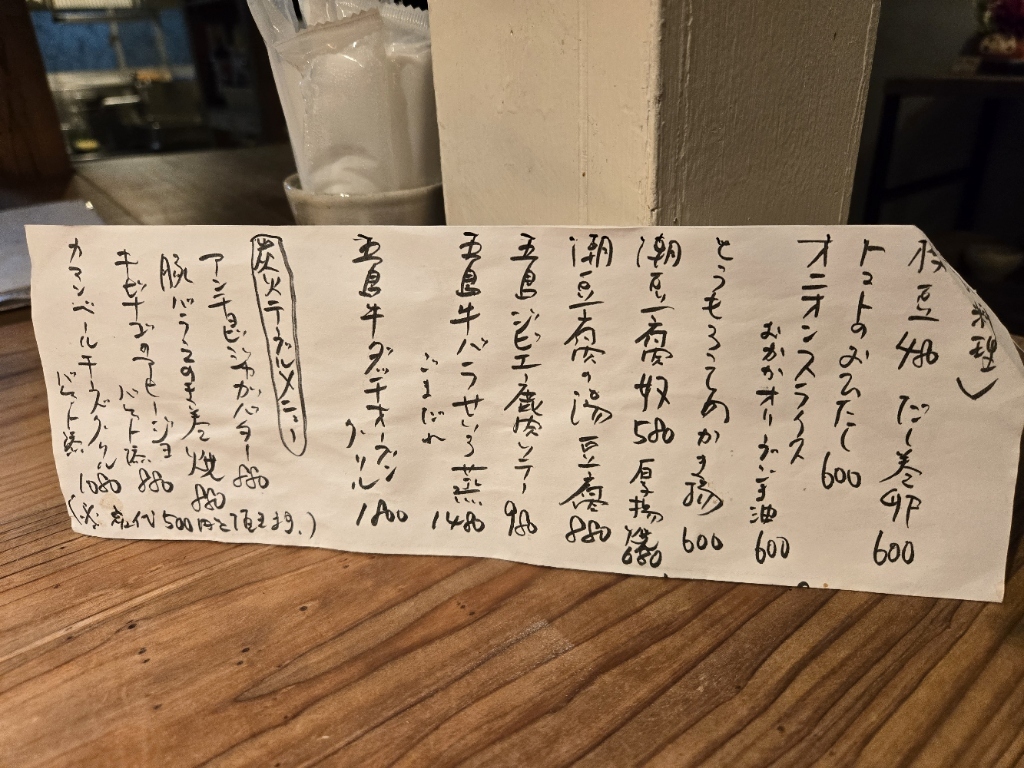 料理
枝豆 480 だし巻卵 600
トマトのおひたし 600
オニオンスライス
おかかオリーブごま油 600
とうもろこしのかき揚 600
潮豆腐奴 580 厚揚焼 680
潮豆腐の湯豆腐 880
五島ジビエ鹿肉ソテー 980
五島牛バラせいろ蒸
ごまだれ 1480
五島牛ダッチオーブン
グリル 1800
炭火テーブルメニュー
アンチョビじゃがバター 880
豚バラえのき巻焼 880
キビナゴのアヒージョ
バケット添 880
カマンベールチーズグリル
バケット添 1080
(※ 炭代500円を頂きます。)